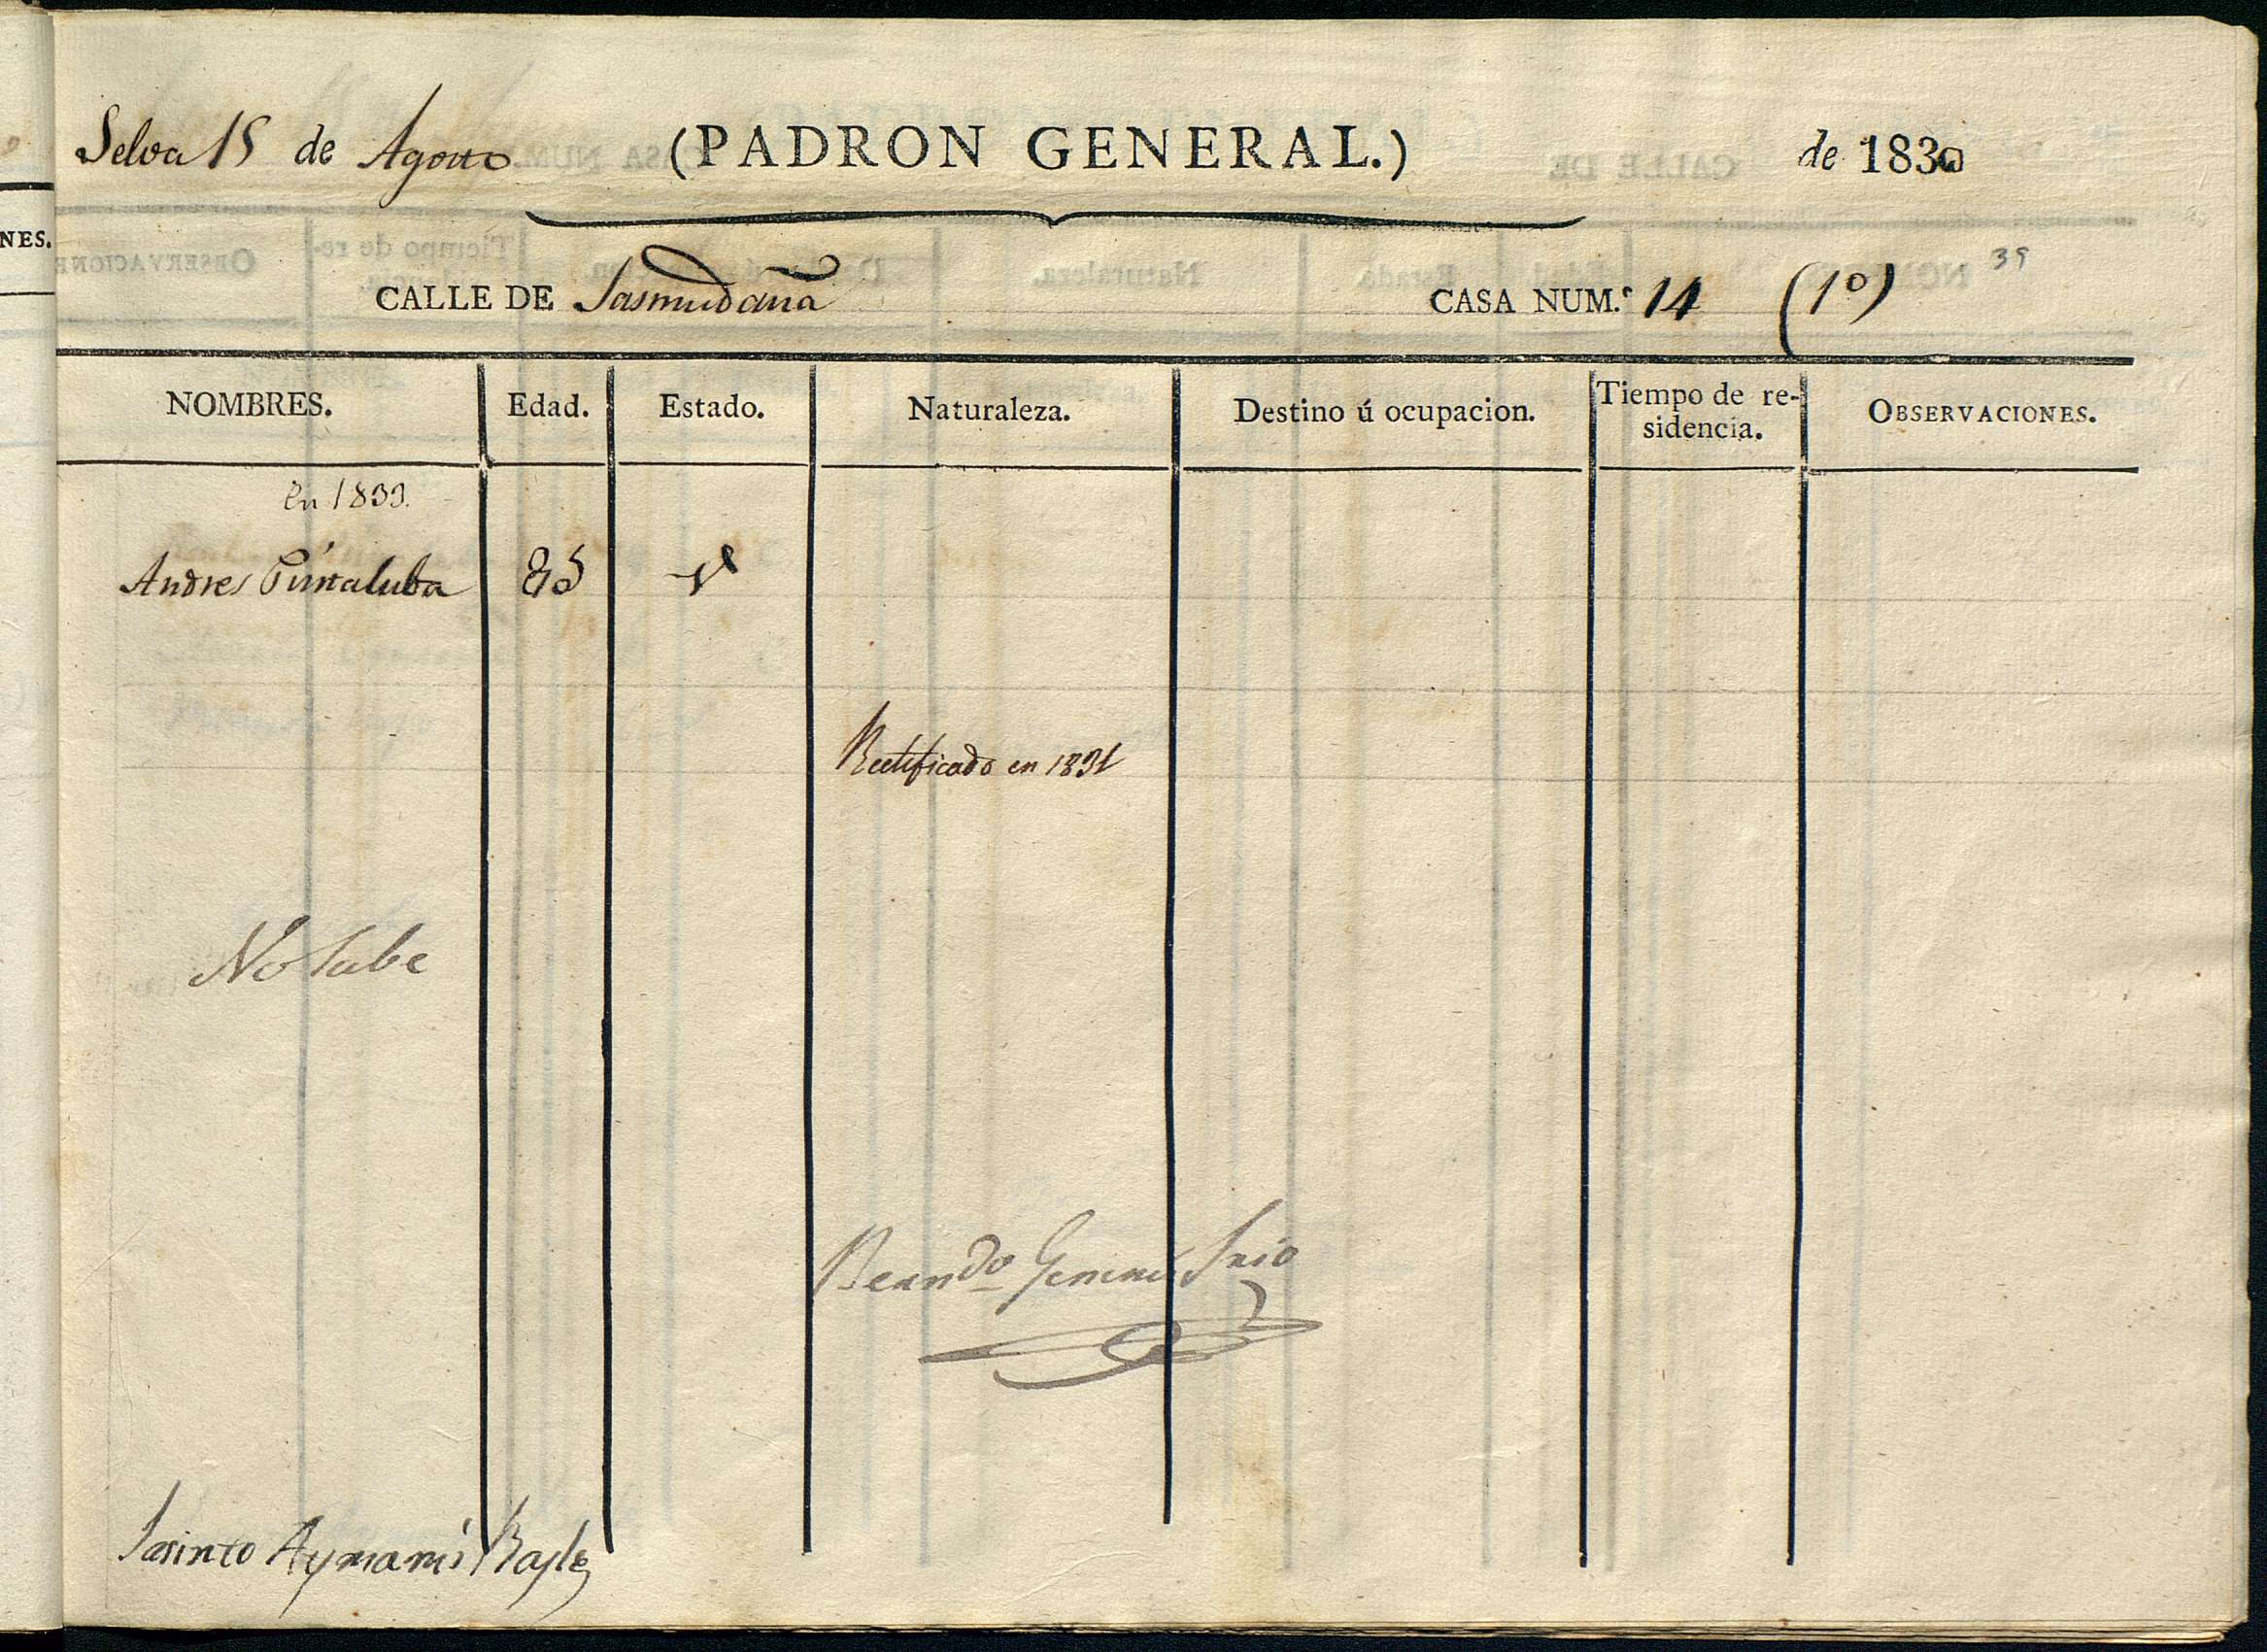 Selva 15 de Agosto (PADRON GENERAL.) de 1830
39
CALLE DE CASA NUM.º 14 (1º)
NOMBRES. Edad. Estado. Naturaleza. Destino ú ocupacion. Tiempo de re-sidencia. OBSERVACIONES.
NES.
en 1833.
Andres 85
Rectificado en 1831
No Sabe
Berndo Srio
Jacinto Aymamí Bayle